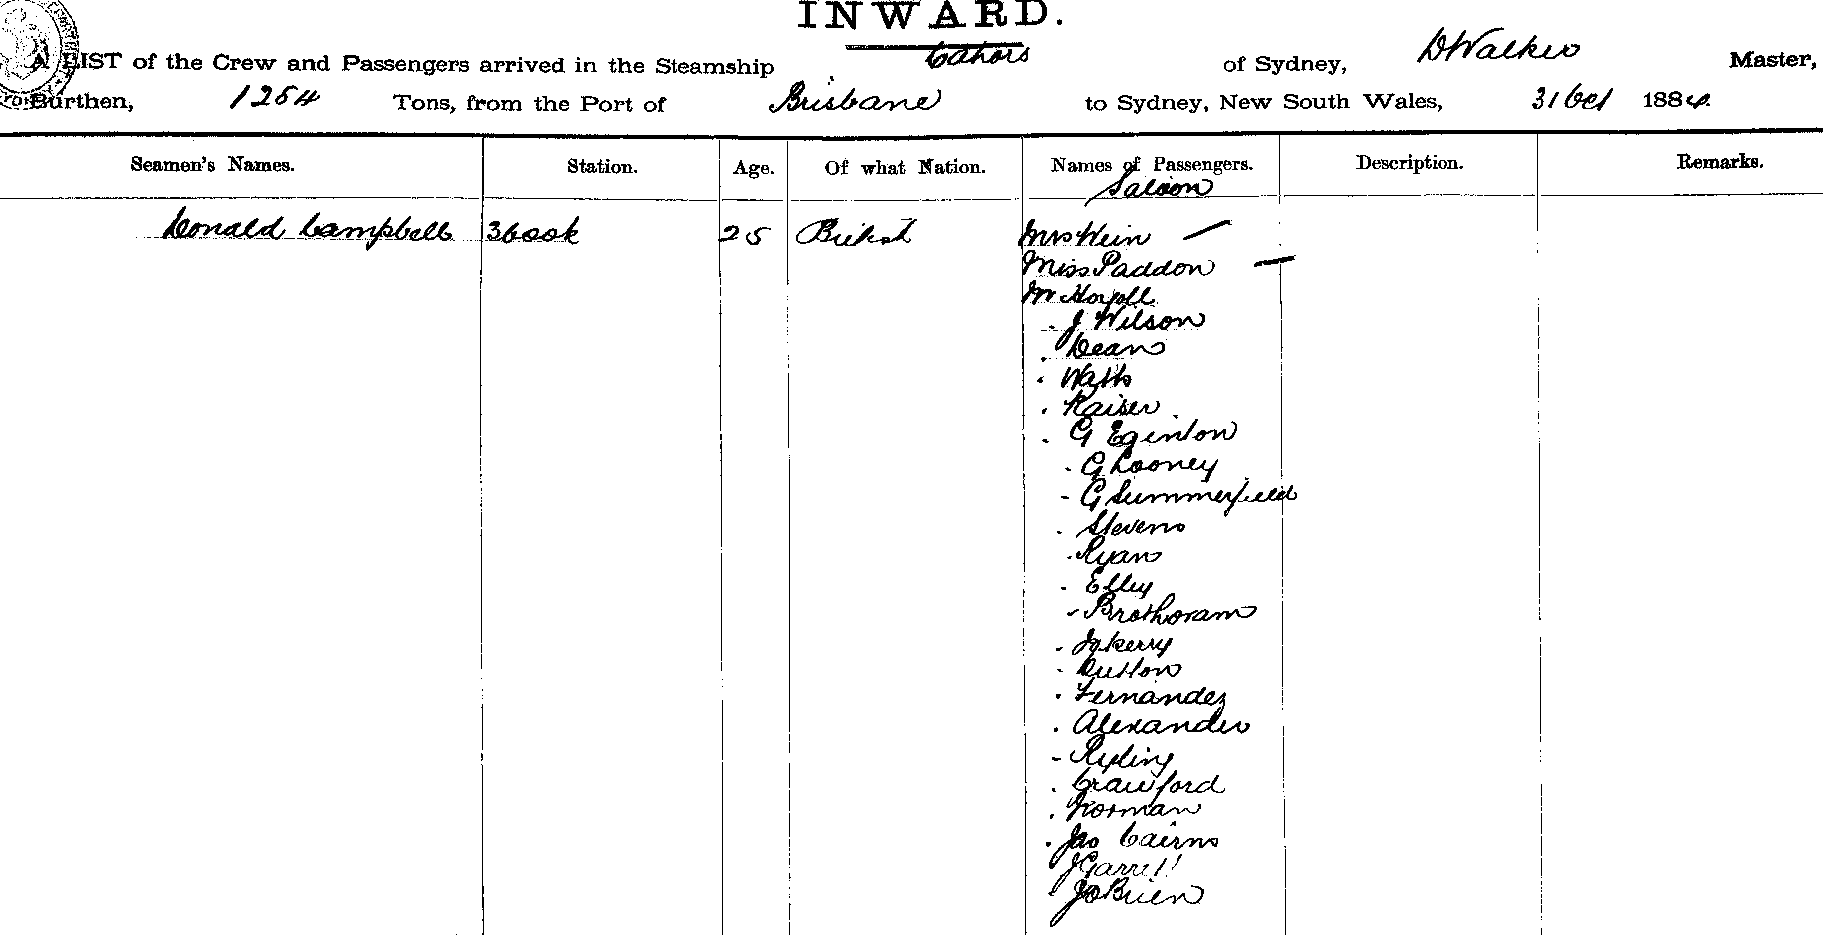 INWARD.
A LIST of the Crew and Passengers arrived in the Steamship Cahors of Sydney, D Walker Master,
Burthen, 1254 Tons, from the Port of Brisbane to Sydney, New South Wales, 31 Oct 1884
Seamen's Names. Station. Age. Of what Nation. Names of Passengers. Description. Remarks.
Saloon
Donald Campbell 3 Cook 25 British Mrs Hein
Miss Paddon
Mr
J Wilson
Dean
Watts
Kaiser
G Eginton
G Looney
G Summerfield
Stevens
Ryan
Elley
Brothoram
Kerry
Dutton
Fernandez
Alexander
Crawford
Norman
Jas Cairns
J Garrett
J O Brien